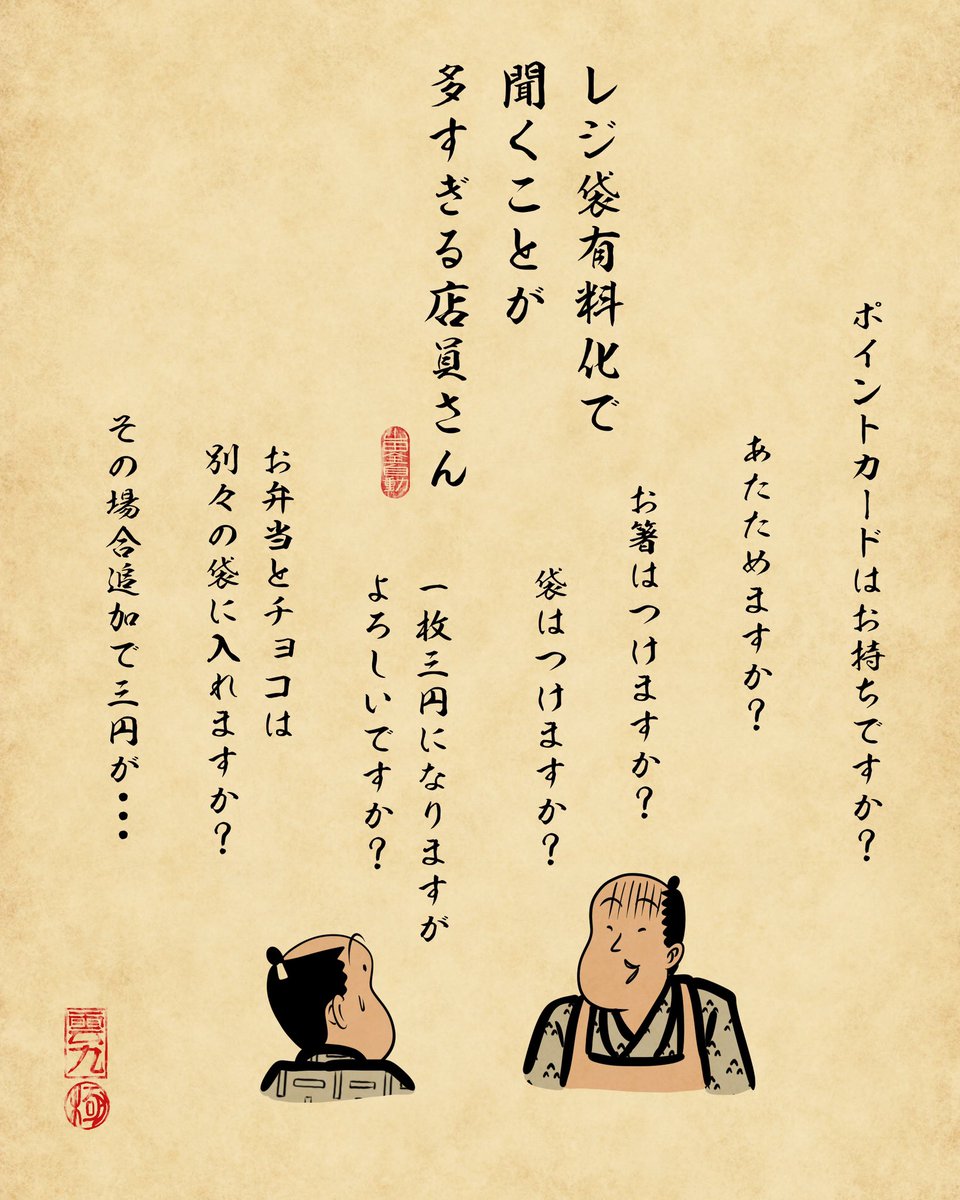 レジ袋有料化で
聞くことが
多すぎる店員さん
ポイントカードはお持ちですか？
あたためますか？
お箸はつけますか？
袋はつけますか？
一枚三円になりますが
よろしいですか？
お弁当とチョコは
別々の袋に入れますか？
その場合追加で三円が・・・